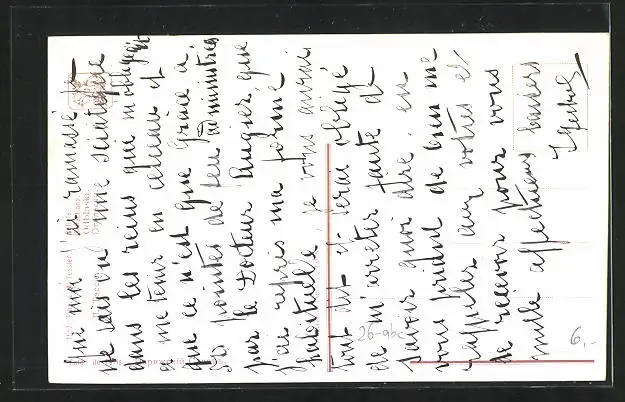 qui m'ai ramassé je
ne sais où une sciatique
dans les reins qui m'obligeait
à me tenir en and et
que ce n'est que grâce à
50 pointes de feu administrées
par le Docteur Augier, que
j'ai repris ma forme
habituelle. je vous aurai
tout dit et serai obligé
de m'arrêter faute de
savoir quoi dire, en
vous priant de bien me
rappeler aux votres et
de recevoir pour vous
mille affectueux baisers
26-abc
6,-